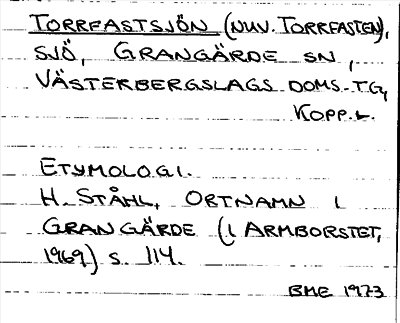 TORRFASTSJÖN (NUV. TORRFASTEN),
SJÖ, GRANGÄRDE SN,
VÄSTERBERGSLAGS DOMS.TG,
KOPP.L.
ETYMOLOGI.
H. STÅHL, ORTNAMN I
GRANGÄRDE (I ARMBORSTET,
1969) S. 114.
BME 1973